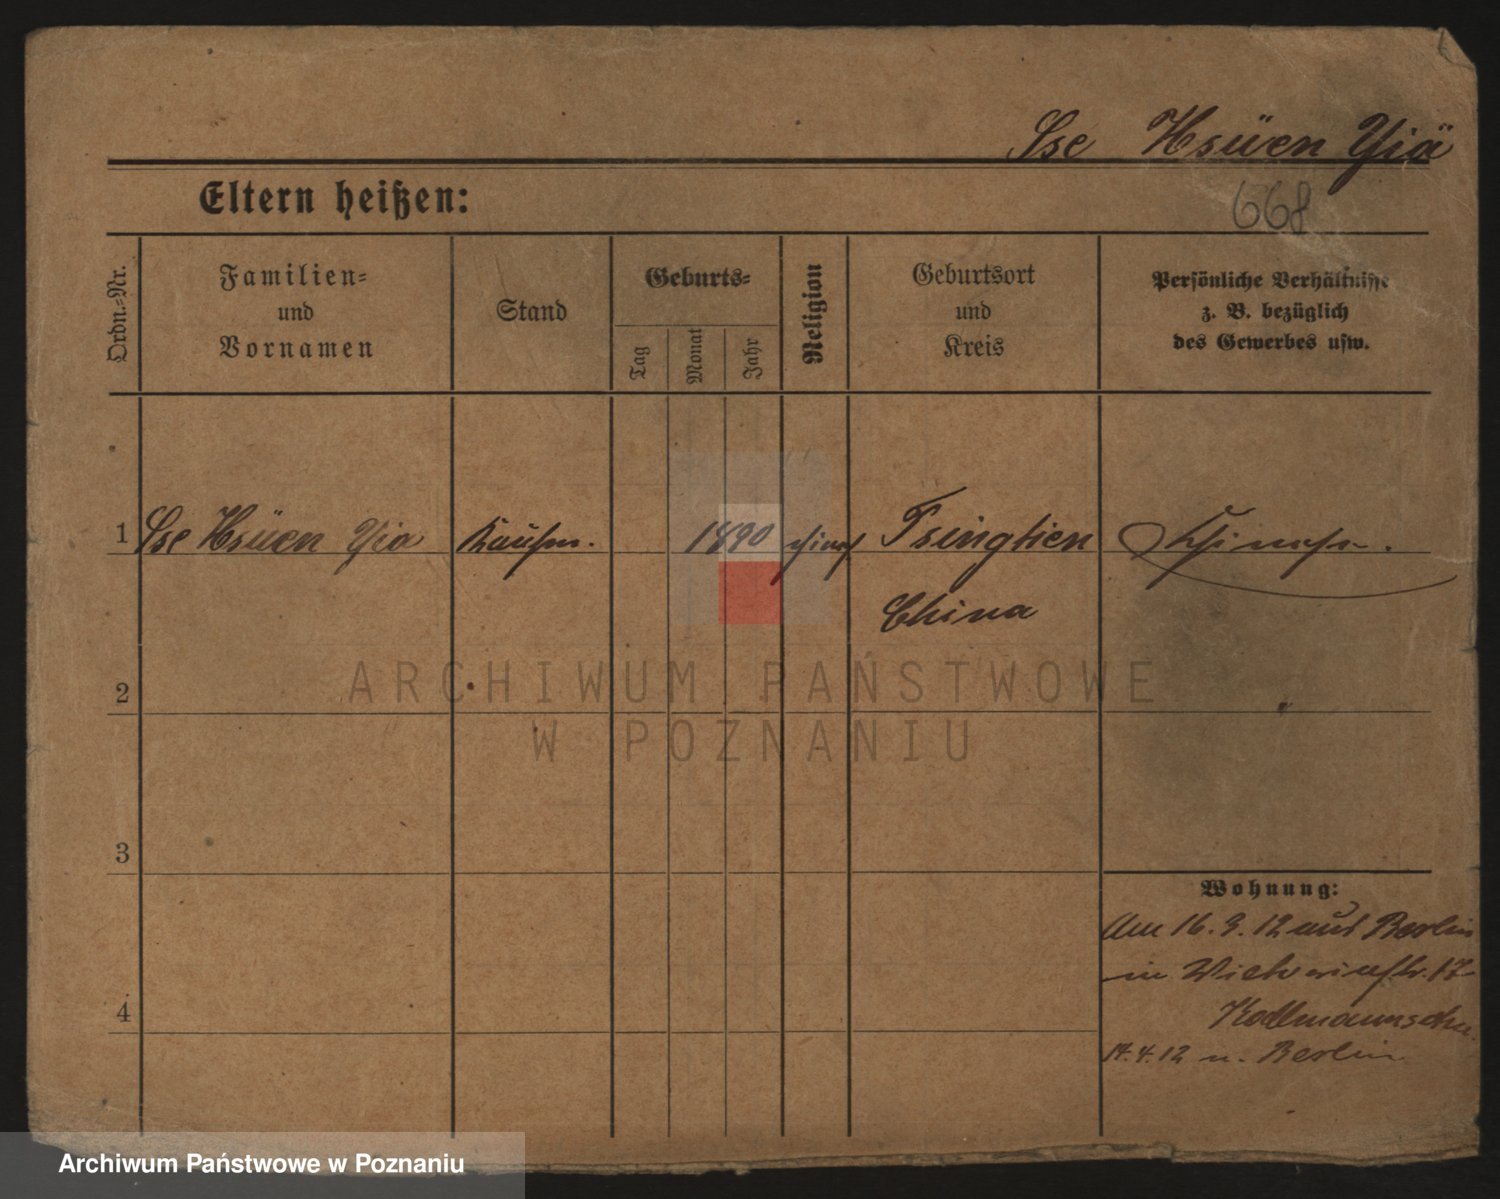 Sse Hsüen Yiä
Eltern heißen:
668
Ordn.-Nr.
Familien-
und
Vornamen
Stand
Geburts-
Tag
Monat
Jahr
Religion
Geburtsort
und
Kreis
Persönliche Verhältnisse
z. B. bezüglich
des Gewerbes usw.
1 Sse Hsüen Yia Kaufm. 1890 Tsingtien
China
2
3
4
Wohnung:
Am 16.3.12 aus Berlin
in 17
14.4.12 n. Berlin
ARCHIWUM PAŃSTWOWE
W POZNANIU
Archiwum Państwowe w Poznaniu